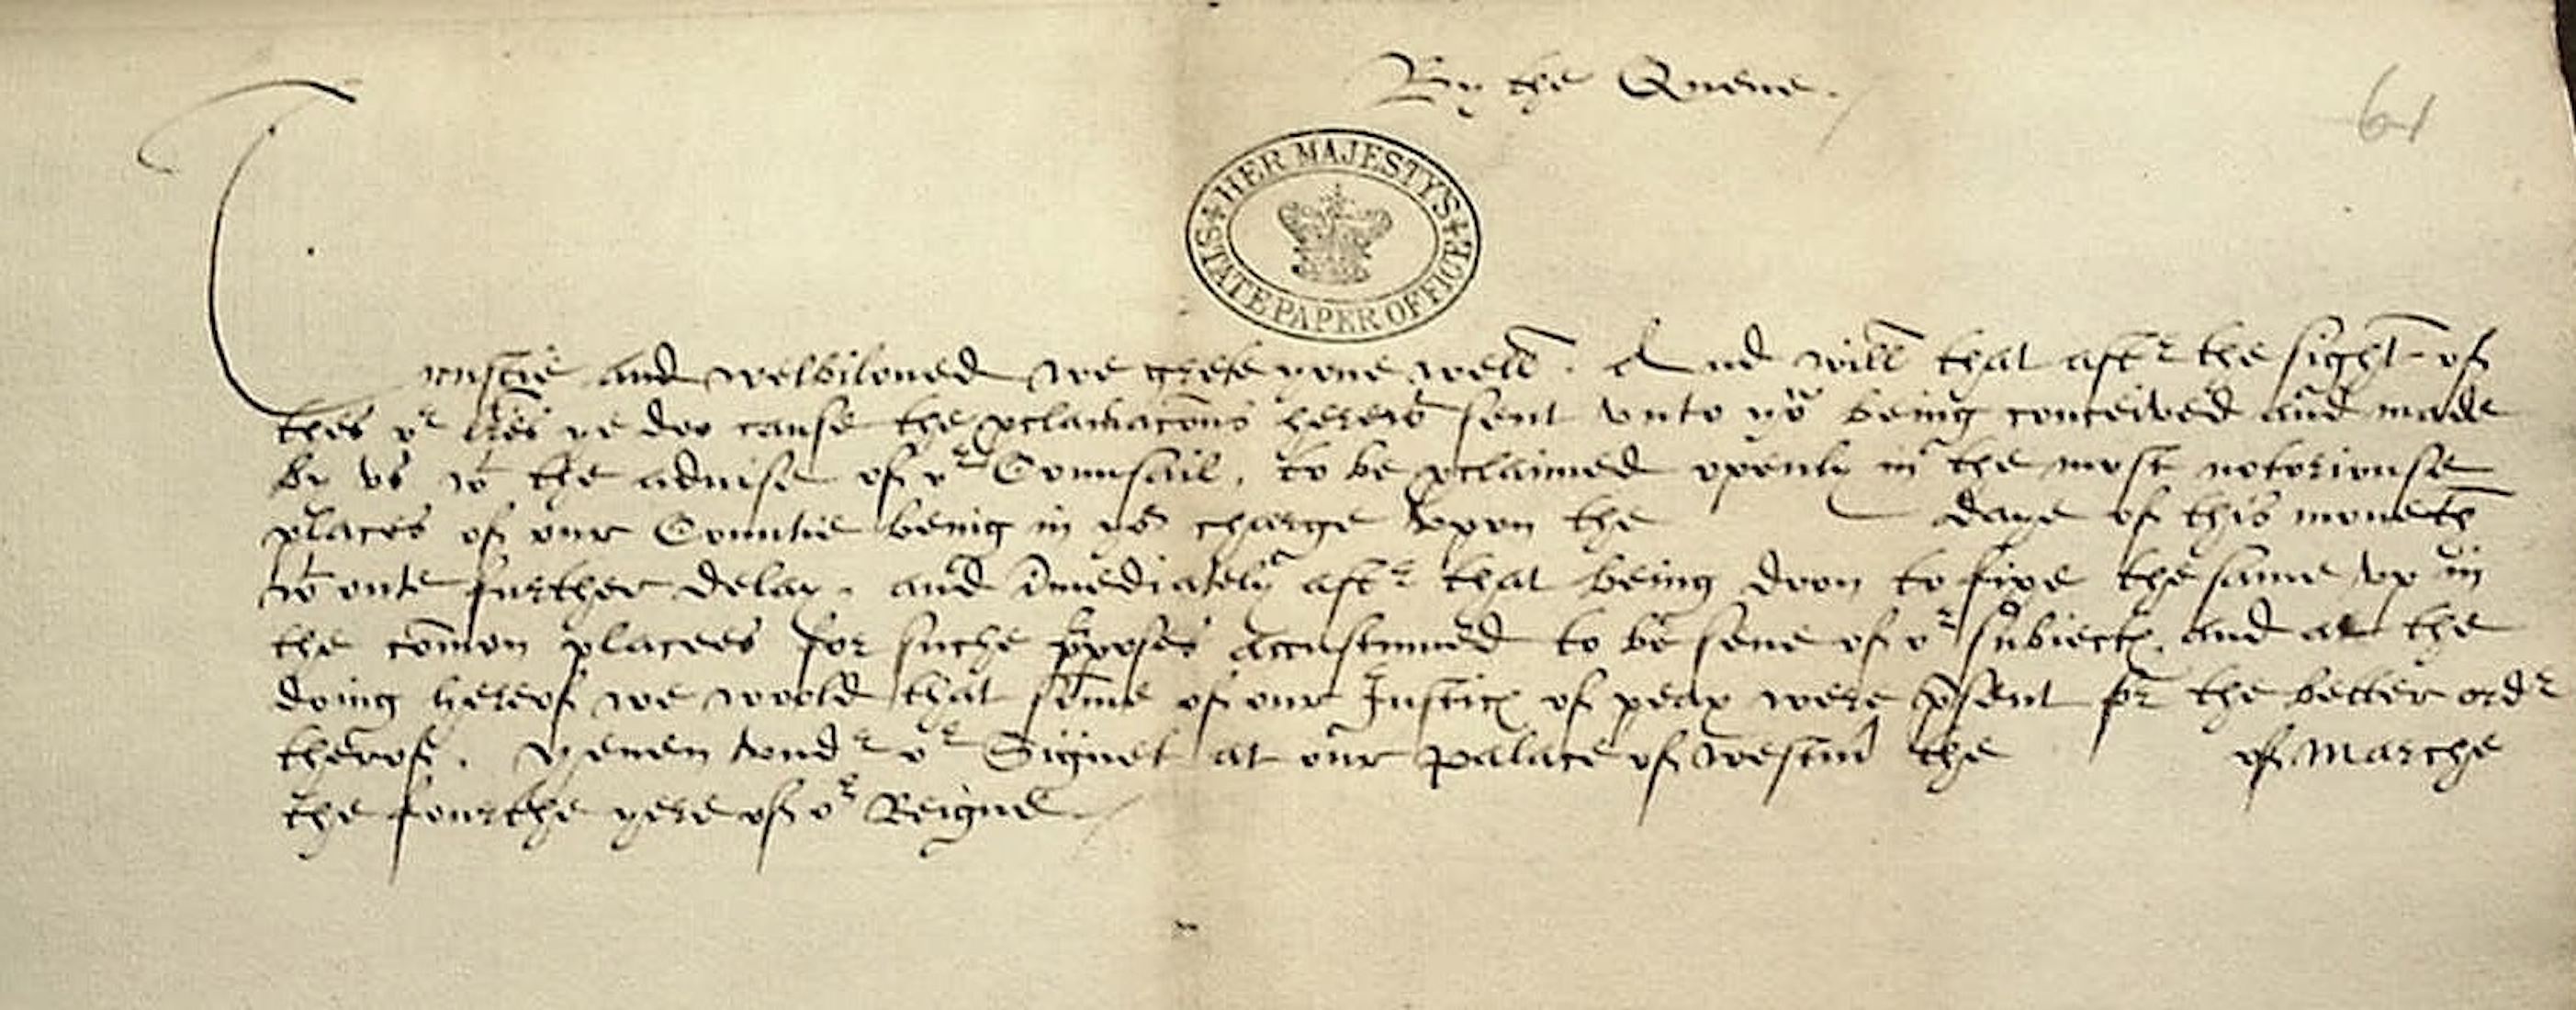 By the Quene.
61
HER MAJESTY'S
STATE PAPER OFFICE
Trustie and welbiloued we grete youe well. And will that aftr the sight of
thes or lres ye doo cause the pclamacons herew sent vnto yo being conceived and made
by vs wt the aduise of or Counsail, to be pclaimed openly in the most notoriouse
places of our Countie being in yor charge vpon the daye of this moneth
wtoute further delay. and imediately aftr that being doon to fixe the same vp in
the comon placees for suche pposes accustumed to be sene of or subiectes. and at the
doing hereof we woold that some of our Justices of peax were psent for the better ordr
therof. Yeuen vndr or Signet at our palace of westm the of Marche
the fourthe yere of or Reigne.